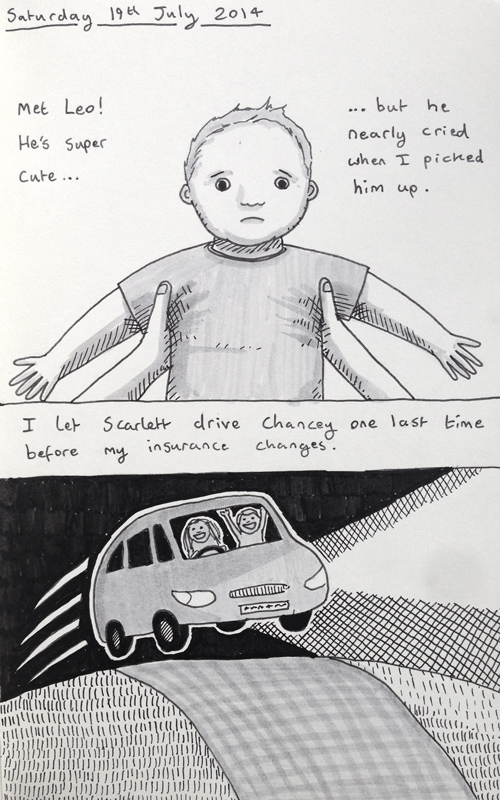 Saturday 19th July 2014
Met Leo!
He's super
cute...
... but he
nearly cried
when I picked
him up.
I let Scarlett drive Chancey one last time
before my insurance changes.